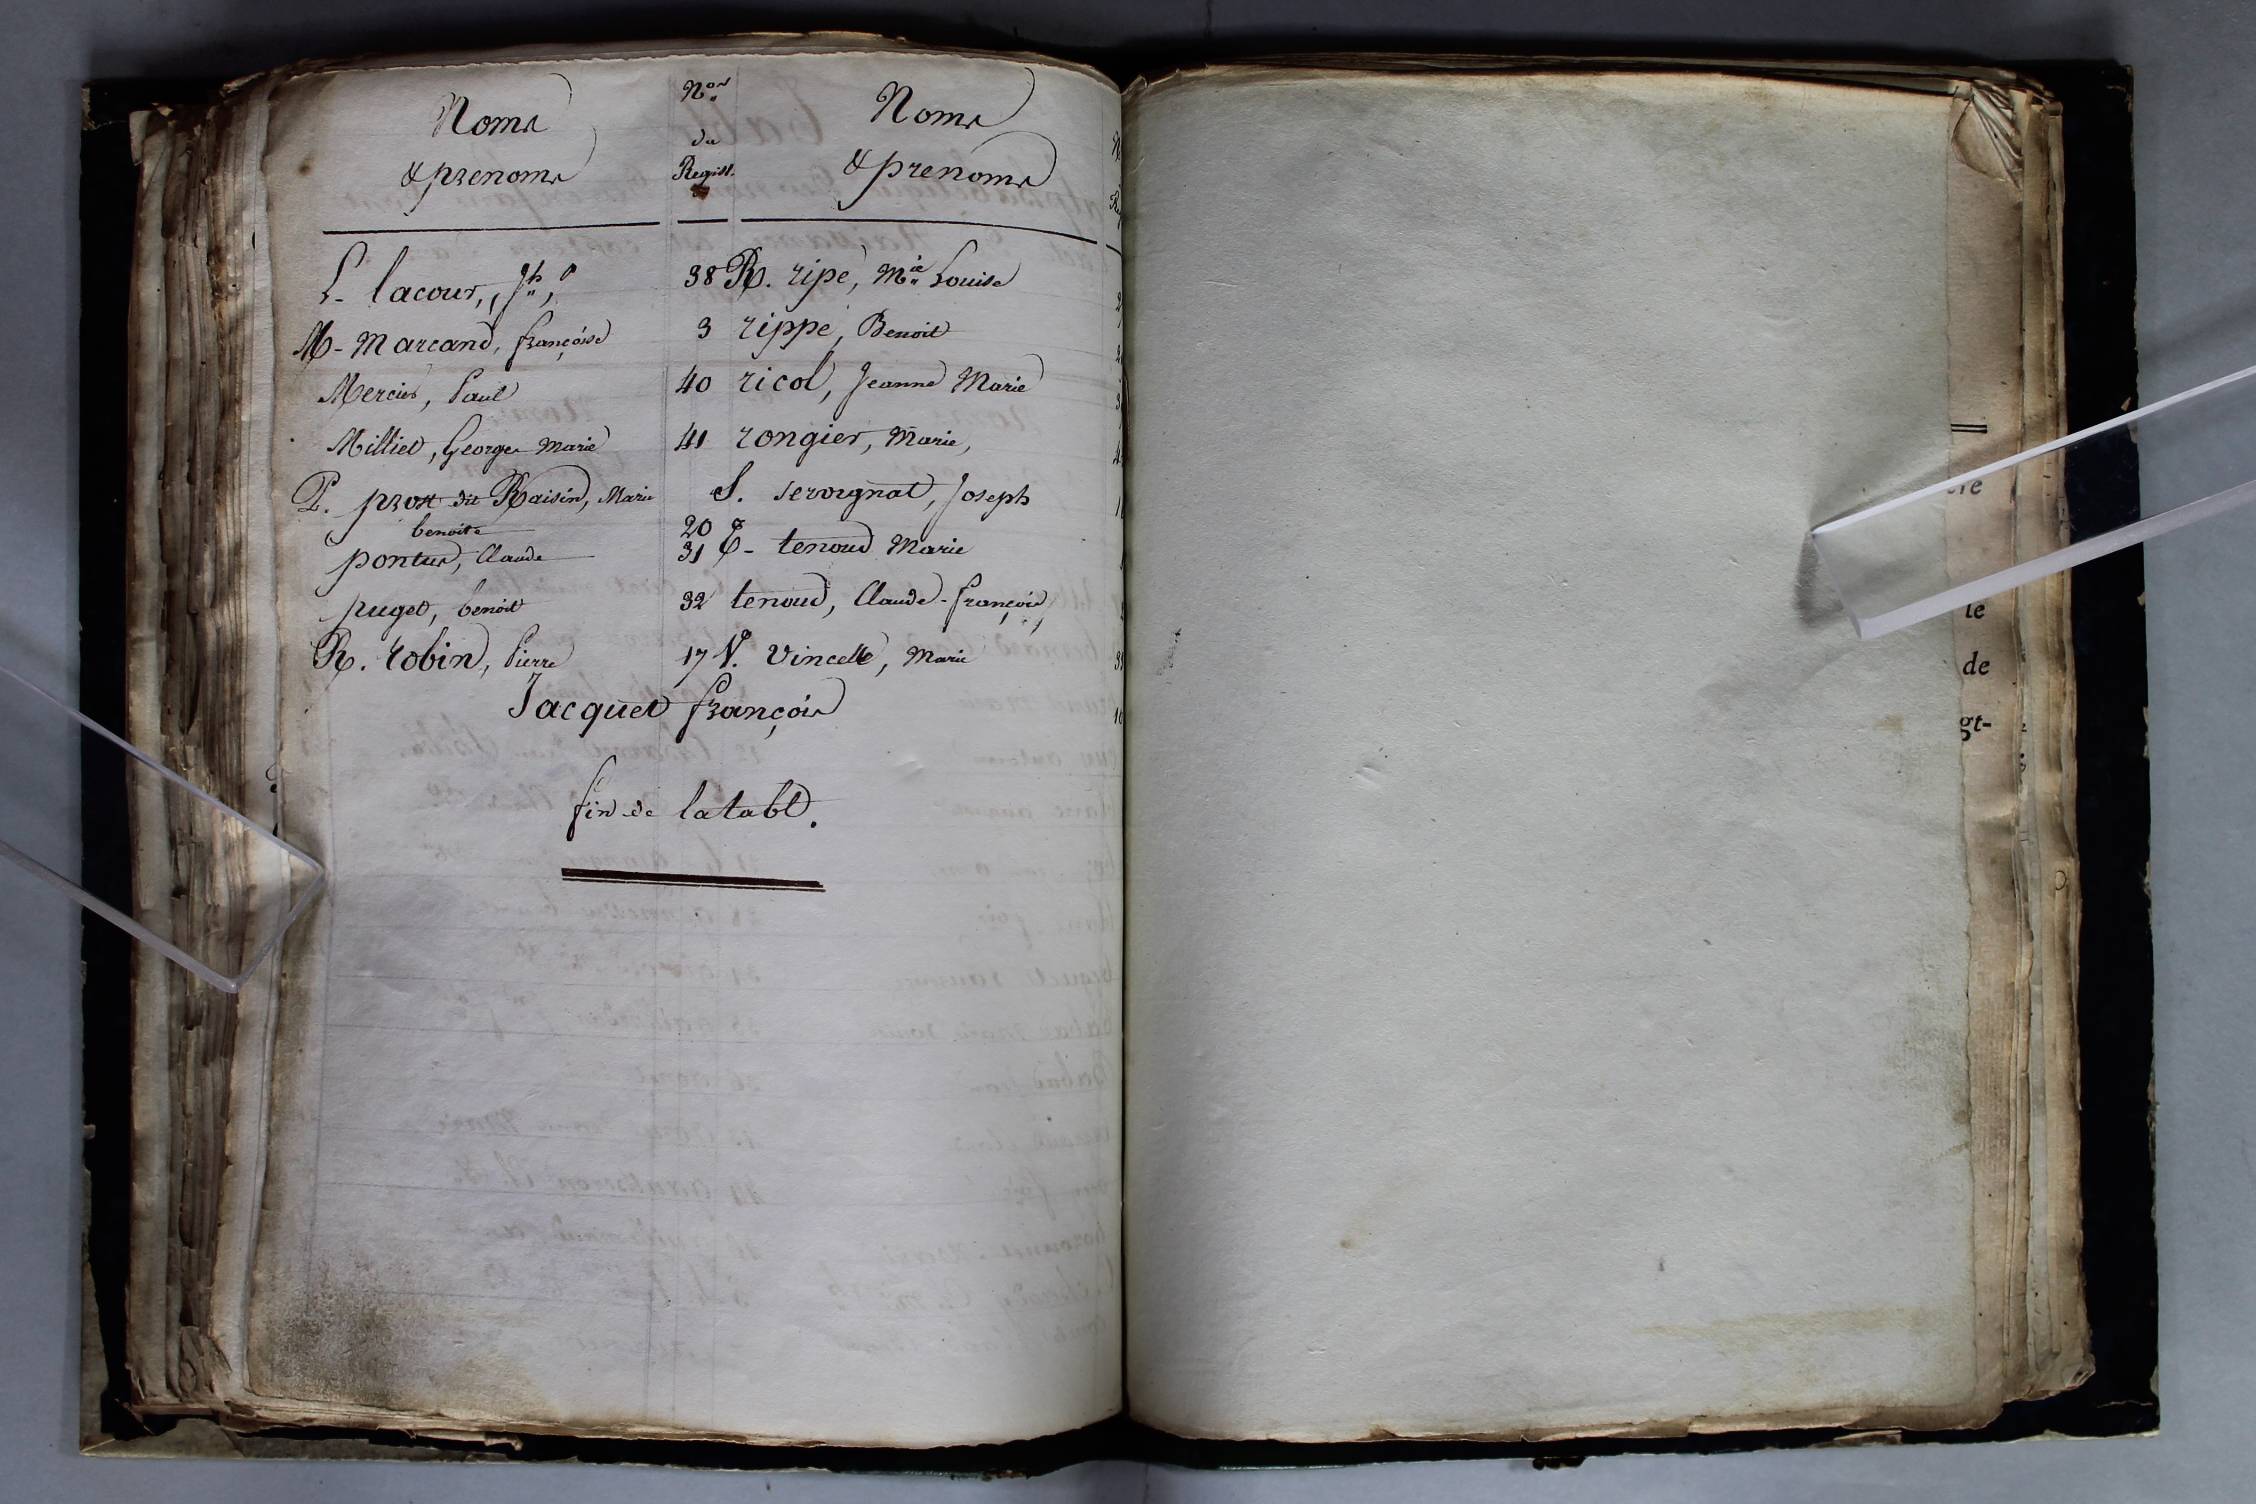 Noms Nos Noms
& prenoms du & prenoms
Regist.
L. lacour, Jh, 38 R. ripe, Mie Louise
M. Marcand, françoise 3 rippe, Benoit
Mercier, Paul 40 ricol, Jeanne Marie
Milliet, George Marie 41 rongier, Marie,
P. prost dit Raisin, Marie S. servignat, Joseph
benoite 20
pontus, Claude 31 T. tenoud Marie
puget, benoit 32 tenoud, Claude-françois,
R. robin, Pierre 17 V. vincelle, Marie
Jacquet françois
fin de la tabl.
le
de
gt-